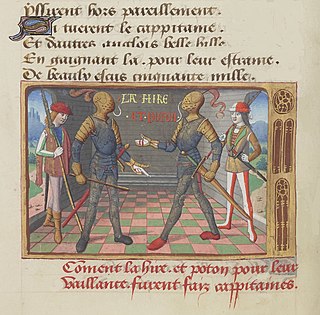 yssirent hors pareillement.
Si tuerent le cappitaine.
Et dautres anglois belle hille
En gaignant la. pour leur estraine.
De beaulx escus cinquante mille.
LA HIRE
ET POTON
Coment la hire. et poton pour leur
vaillance furent faiz cappitaines.